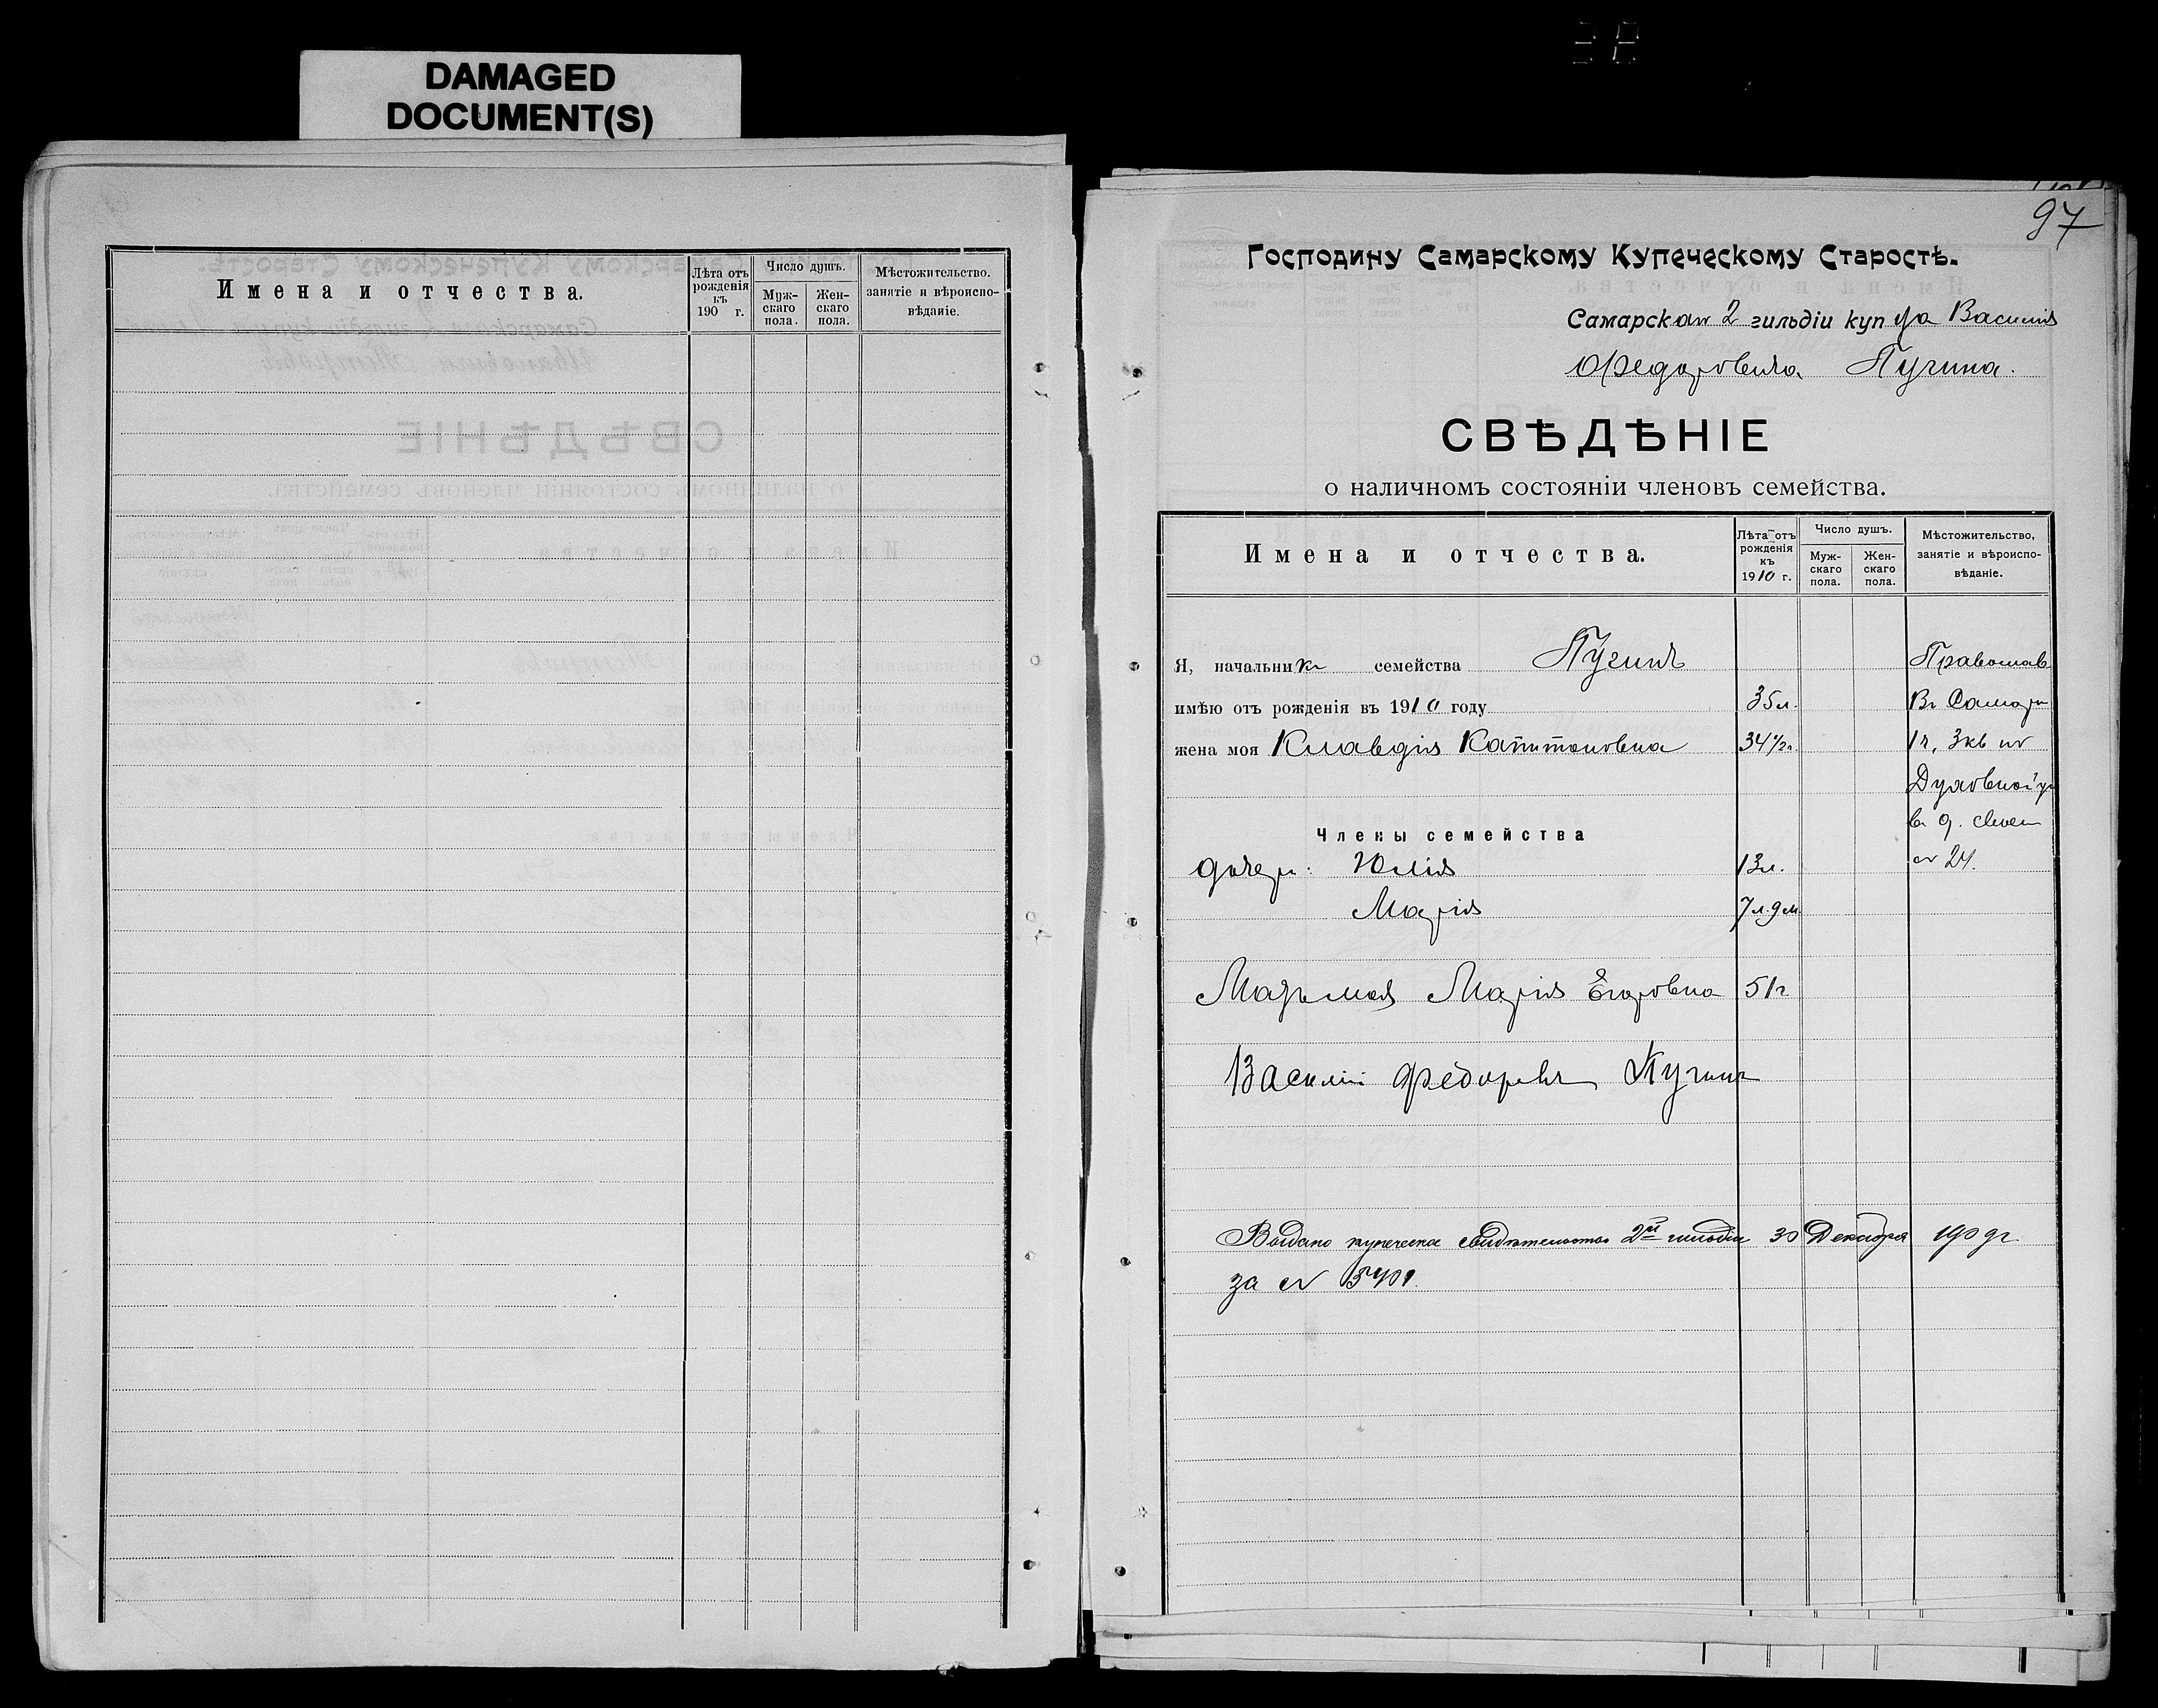 DAMAGED
DOCUMENT(S)
Имена и отчества.
Лѣта отъ рожденія къ 190 г.
Число душъ.
Мужскаго пола.
Женскаго пола.
Мѣстожительство. занятіе и вѣроисповѣданіе.
97
Господину Самарскому Купеческому Старостѣ.
Самарскаго 2 гильдіи купца Василія
Федоровича Пучина.
СВѢДѢНІЕ
о наличномъ состояніи членовъ семейства.
Имена и отчества.
Лѣта отъ рожденія къ 1910 г.
Число душъ.
Мужскаго пола.
Женскаго пола.
Мѣстожительство, занятіе и вѣроисповѣданіе.
Я, начальникъ семейства Пучинъ Православ.
имѣю отъ рожденія въ 1910 году 35 л. Въ Самарѣ
жена моя Клавдія Капитоновна 34 1/2 г. 1 ч, 3 кв по
Духовной ул
в д.
Члены семейства
дочери: Юлія 13 л. № 24.
Марія 7 л. 9 м.
Мать моя Марія Егоровна 51 г
Василій Федоровъ Пучинъ
Выдано купеческое свидѣтельство 2й гильдіи 30 Декабря 1909 г.
за №